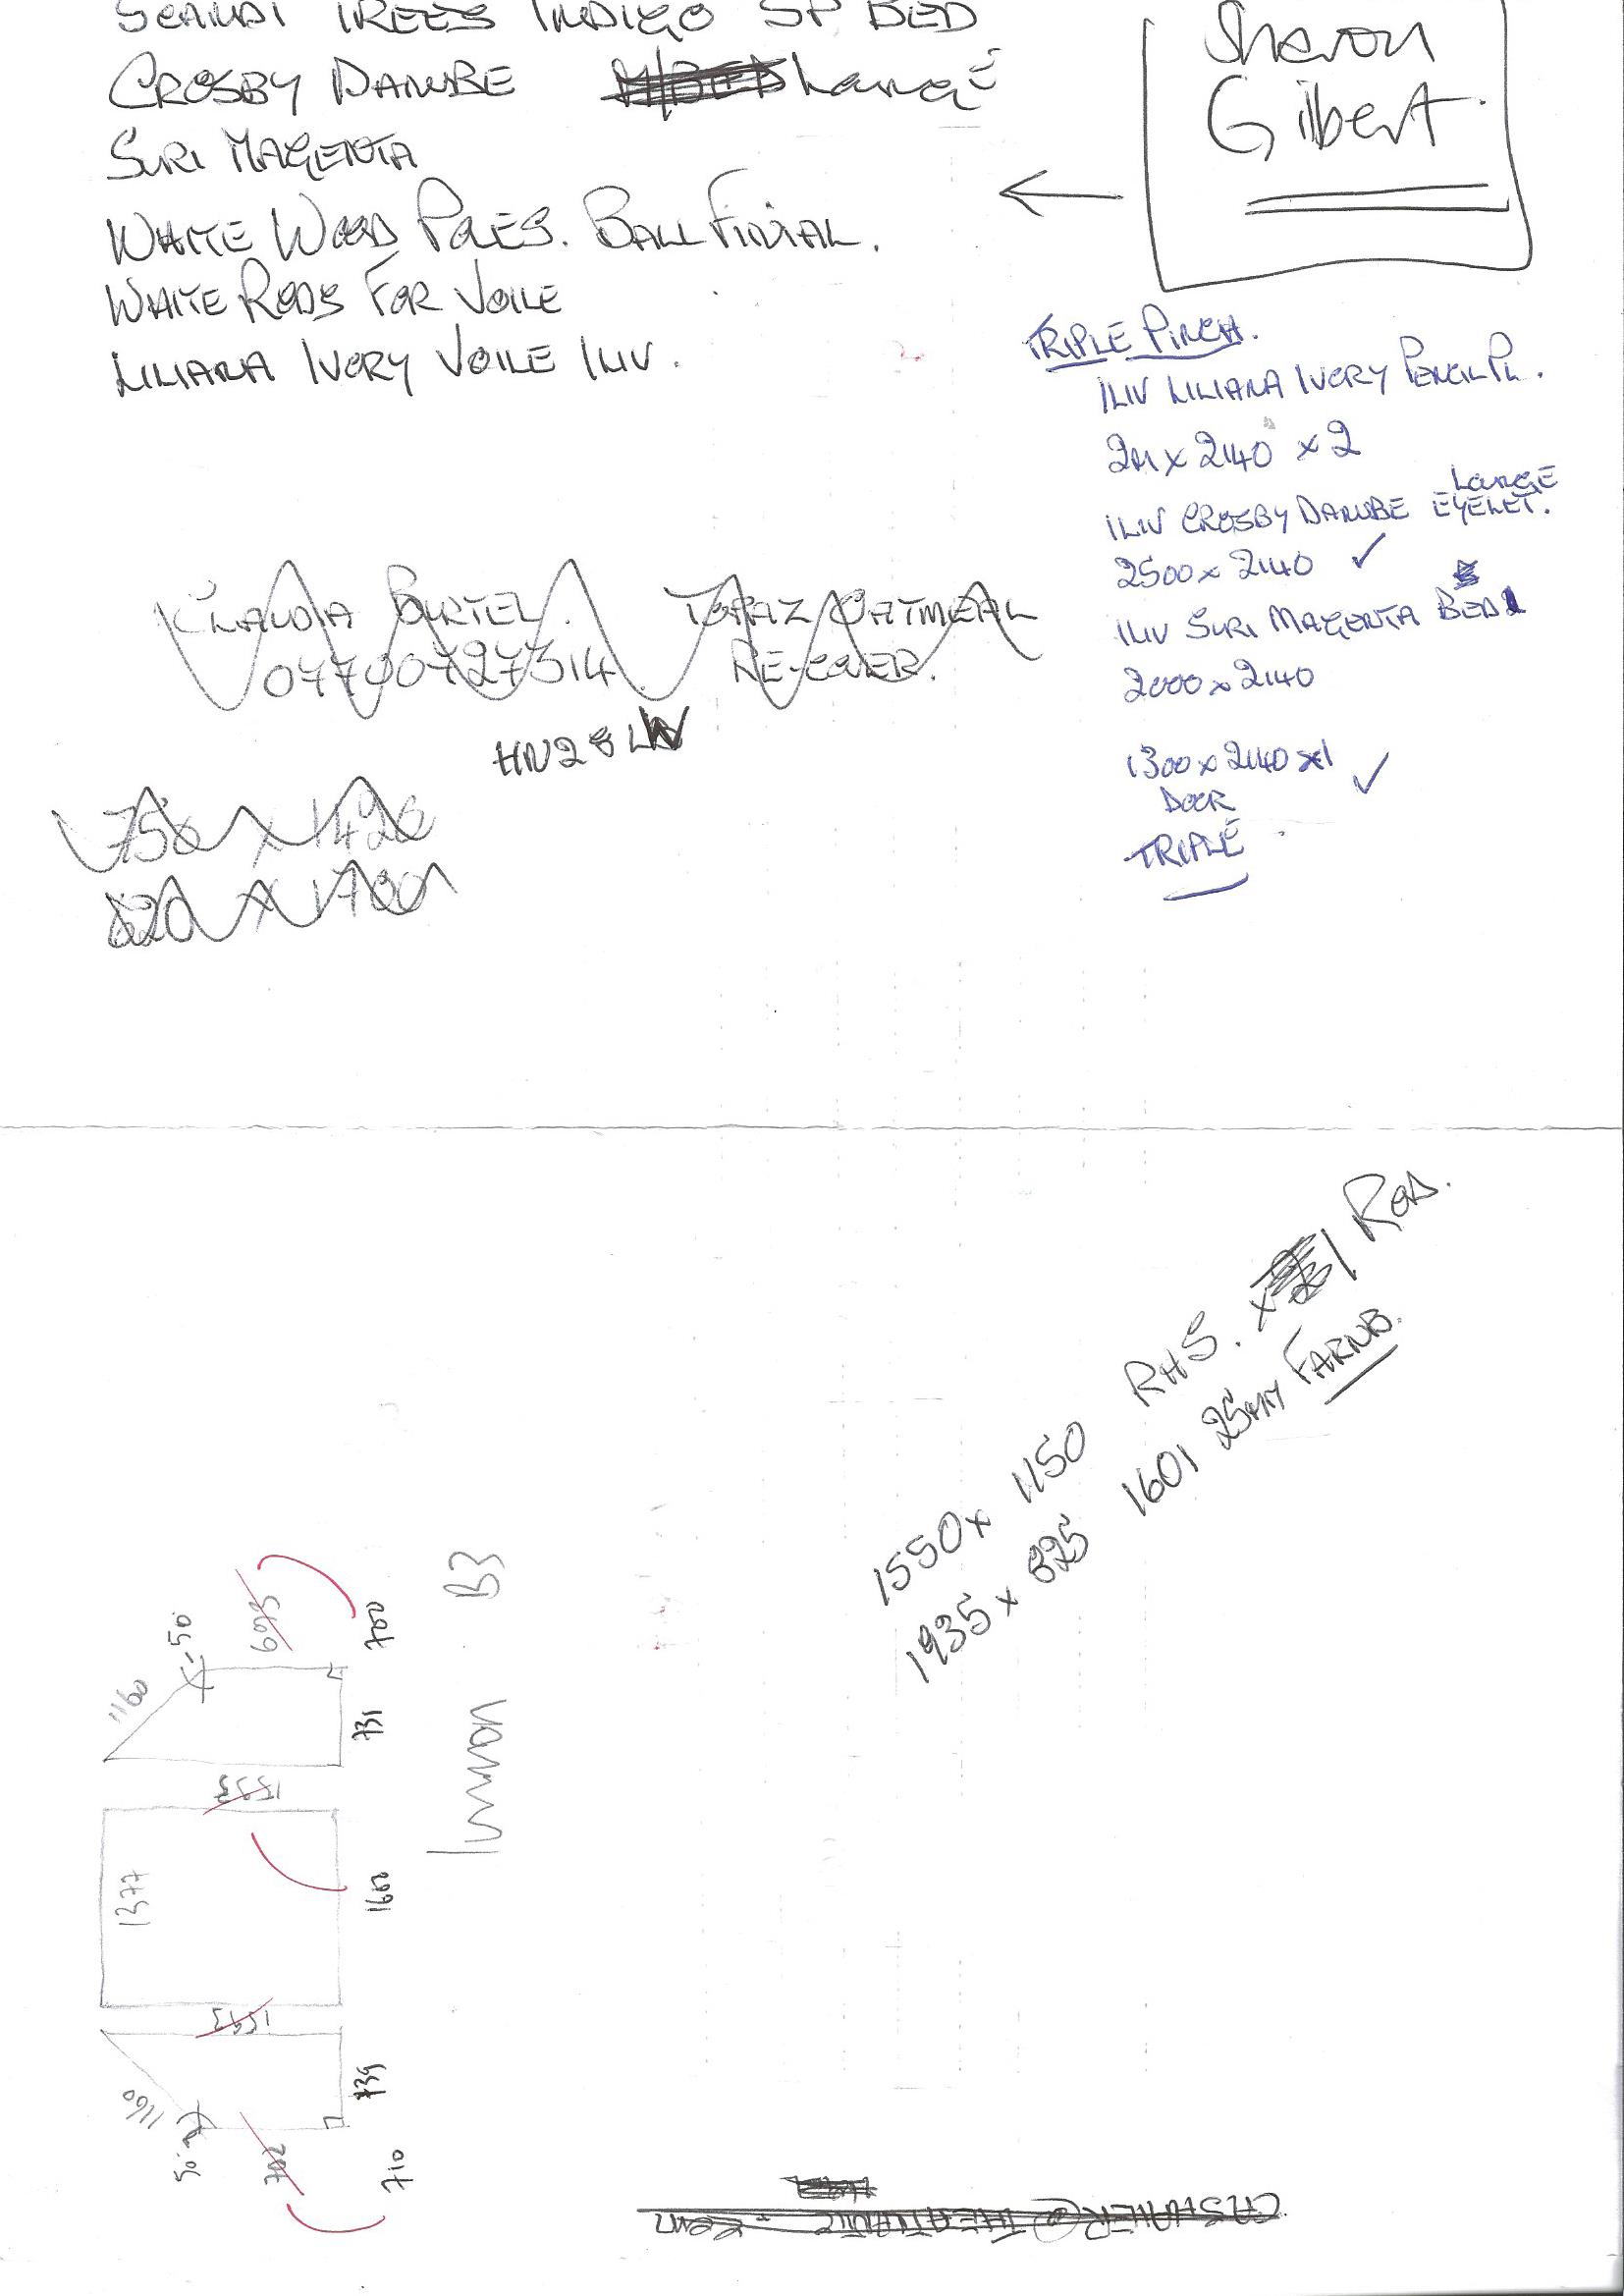 SCANDI TREES INDIGO SP BED
CROSBY DANUBE LARGE
SURI MAGENTA
WHITE WOOD POLES. BALL FINIAL.
WHITE RODS FOR VOILE
LILIANA IVORY VOILE ILIV.
Sharon
Gilbert
TRIPLE PINCH.
ILIV LILIANA IVORY PENCIL PL.
2M x 2140 x 2
LARGE
ILIV CROSBY DANUBE EYELET.
2500 x 2140 ✓
ILIV SURI MAGENTA BED
2000 x 2140
1300 x 2140 x1 ✓
DOOR
TRIPLE
CLAUDIA TOPAZ OATMEAL
RE-COVER.
HN2 8
750 x 1426
x
1550 x 1150 RHS. x 1 ROD.
1935 x 825 1601 25MM FARNB.
B3
50
693
700
1160
731
1377
1600
739
1160
50
702
710
CASHALER@THEATTIC